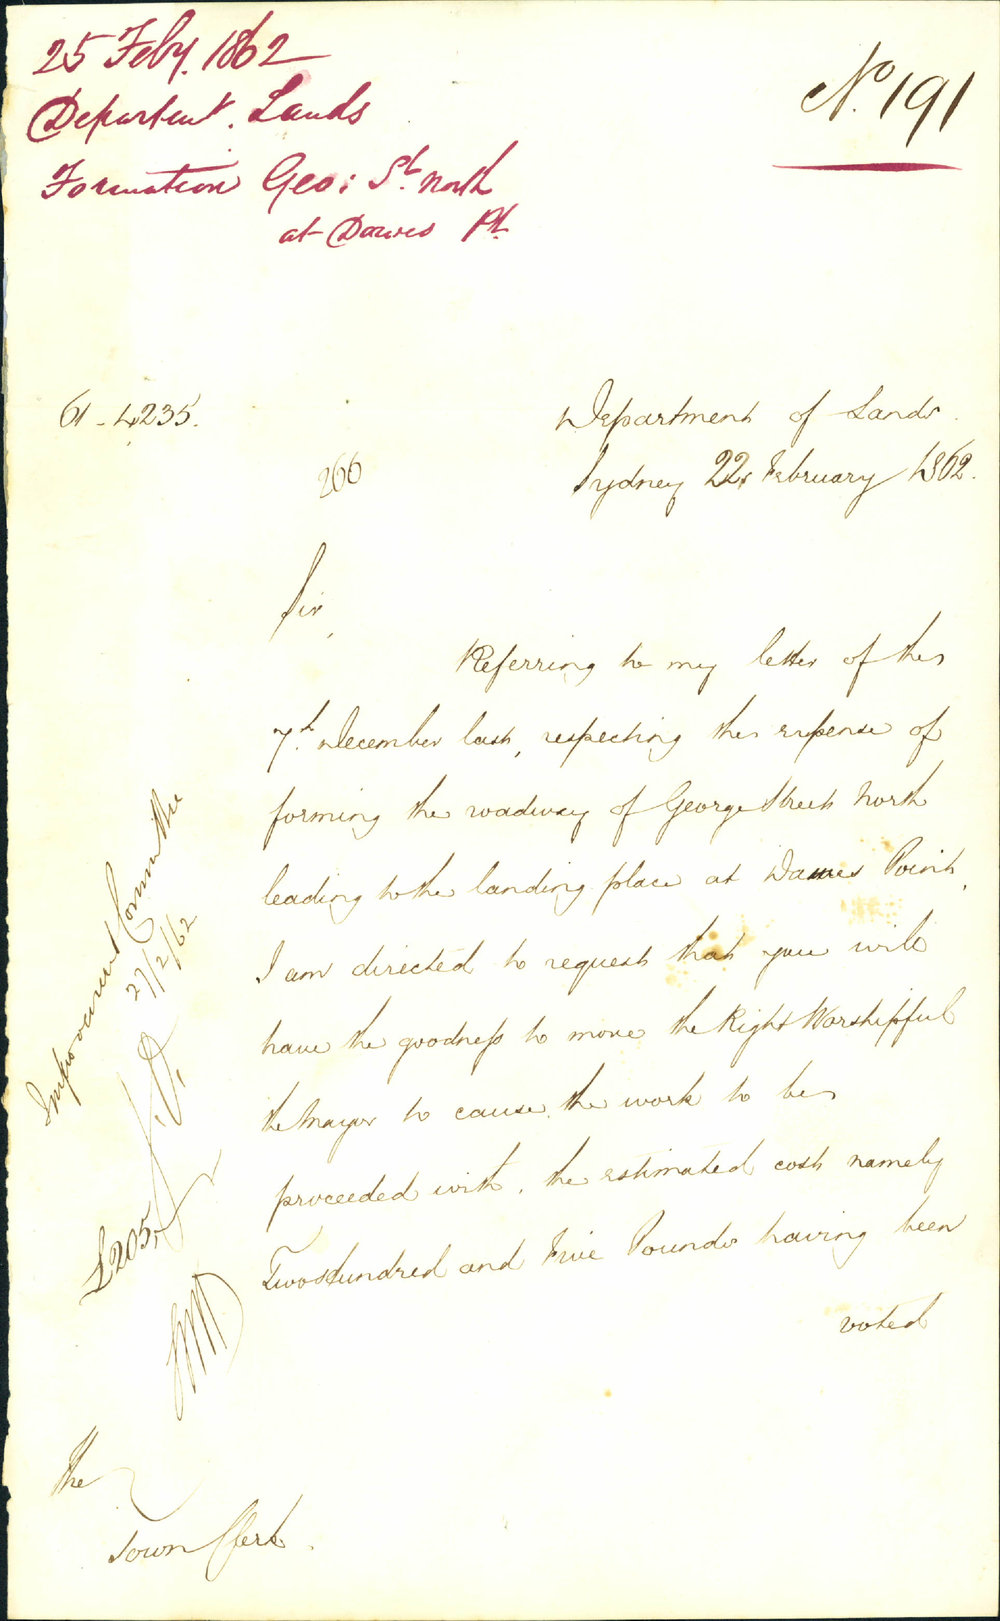 25 Feby. 1862
Departent. Lands
Formation Geo: St. North
at Dawes Pt.
No. 191
61-4235.
266
Department of Lands.
Sydney 22, February 1862.
Sir,
Referring to my letter of the
7th December last, respecting the expense of
forming the roadway of George Street North
leading to the landing place at Dawes Point,
I am directed to request that you will
have the goodness to move the Right Worshipful
the Mayor to cause the work to be
proceeded with, the estimated cost namely
Two Hundred and Five Pounds having been
voted
Improvement Committee
27/2/62
£205
The
Town Clerk.